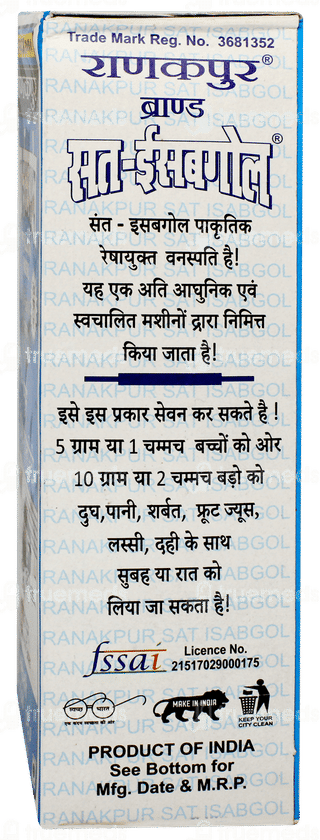 Trade Mark Reg. No. 3681352
राणकपुर®
ब्राण्ड
सत-ईसबगोल®
संत - इसबगोल पाकृतिक
रेषायुक्त वनस्पति है!
यह एक अति आधुनिक एवं
स्वचालित मशीनों द्रारा निमित्त
किया जाता है!
इसे इस प्रकार सेवन कर सकते है !
5 ग्राम या 1 चम्मच बच्चों को ओर
10 ग्राम या 2 चम्मच बड़ो को
दुघ,पानी, शर्बत, फ्रूट ज्यूस,
लस्सी, दही के साथ
सुबह या रात को
लिया जा सकता है!
fssai Licence No.
21517029000175
स्वच्छ भारत
एक कदम स्वच्छता की ओर
MAKE IN INDIA
KEEP YOUR
CITY CLEAN
PRODUCT OF INDIA
See Bottom for
Mfg. Date & M.R.P.